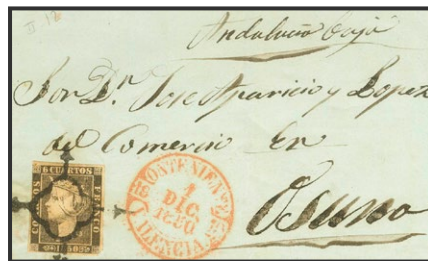 Andalucia Baja
Sor Dn. Jose Aparicio y Lopez
del Comercio En
Osuna
CORREOS 6 CUARTOS FRANCO 1850
ONTENIENTE
1
DIC
1850
VALENCIA